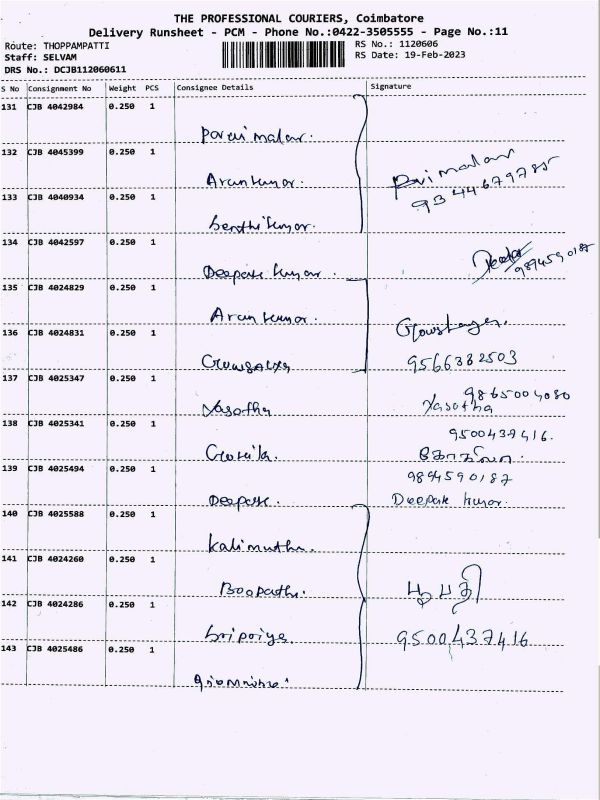 THE PROFESSIONAL COURIERS, Coimbatore
Delivery Runsheet - PCM - Phone No.:0422-3505555 - Page No.:11
Route: THOPPAMPATTI
RS No.: 1120606
Staff: SELVAM
RS Date: 19-Feb-2023
DRS No.: DCJB112060611
S No Consignment No Weight PCS Consignee Details Signature
131 CJB 4042984 0.250 1
132 CJB 4045399 0.250 1
Arunkumar.
9344679785
133 CJB 4040934 0.250 1
Senthilkumar.
134 CJB 4042597 0.250 1
9894590187
Deepak kumar.
135 CJB 4024829 0.250 1
Arunkumar.
136 CJB 4024831 0.250 1
9566382503
137 CJB 4025347 0.250 1
9865004080
Yasotha Yasotha
138 CJB 4025341 0.250 1
9500437416.
Gokila. கோகிலா.
139 CJB 4025494 0.250 1
9894590187
Deepak. Deepak kumar.
140 CJB 4025588 0.250 1
Kalimuthu.
141 CJB 4024260 0.250 1
Boopathi. பூபதி
142 CJB 4024286 0.250 1
Sripriya. 9500437416
143 CJB 4025486 0.250 1